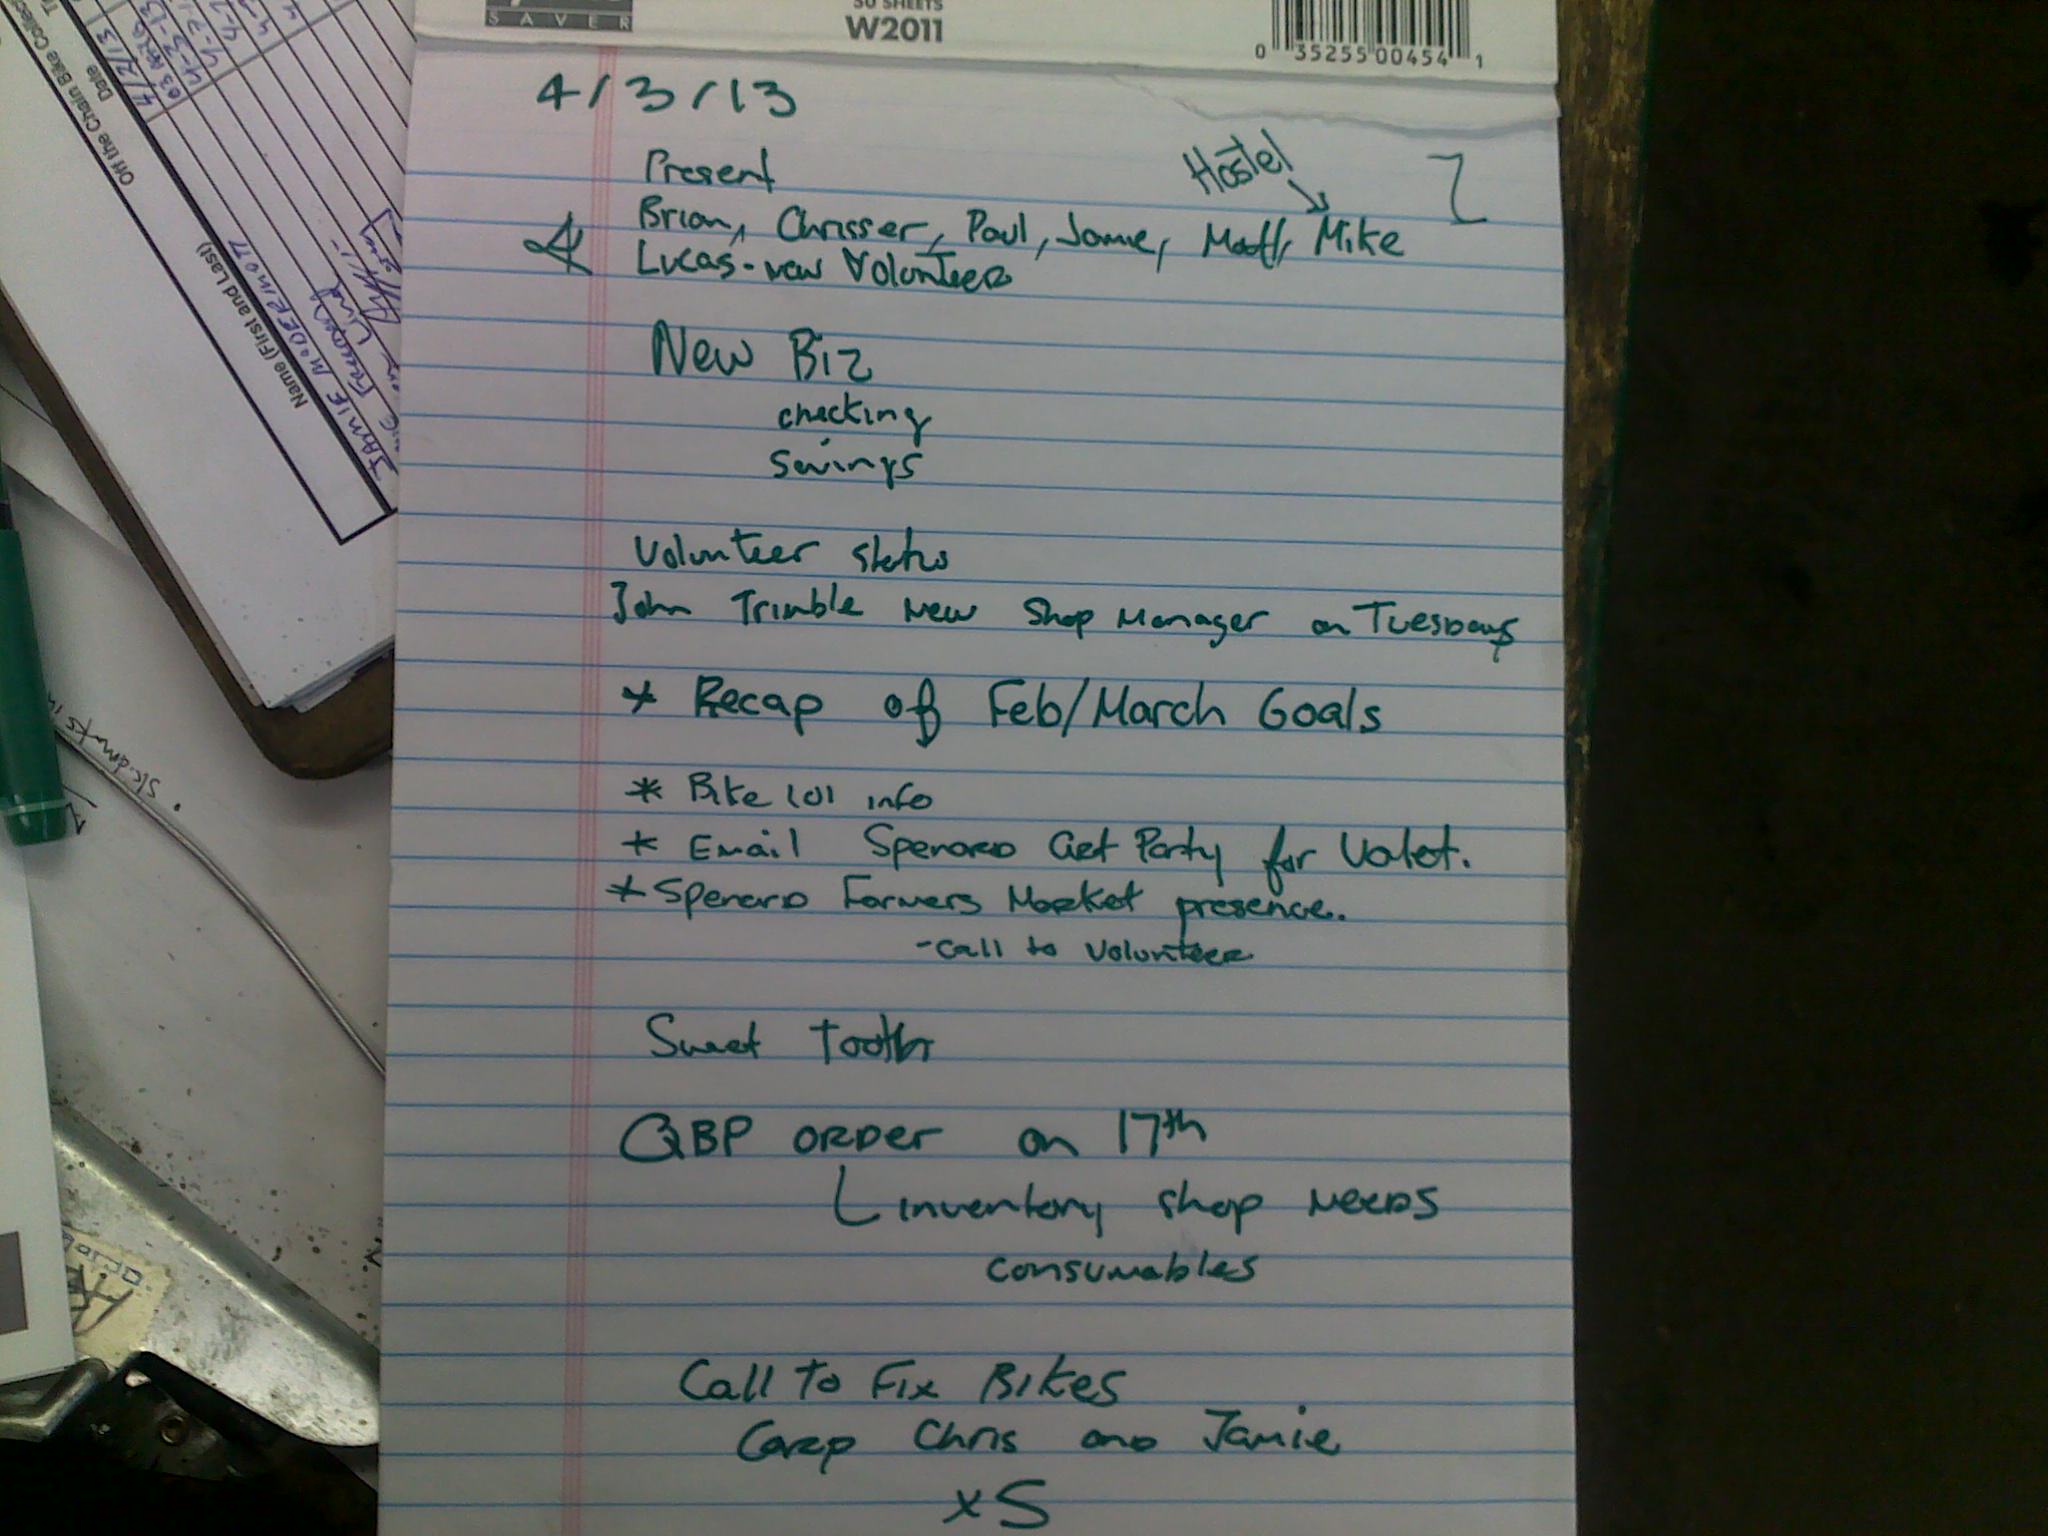 SAVER
50 SHEETS
W2011
0 35255 00454 1
4/3/13
Present
Hostel
Brian, Chrisser, Paul, Jamie, Matt, Mike
Lucas - new Volunteer
New Biz
checking
savings
Volunteer status
John Trimble New Shop Manager on Tuesdays
* Recap of Feb/March Goals
* Bike 101 info
* Email Spenard Get Party for Valet.
* Spenard Farmers Market presence.
- call to volunteer
Sweet Tooth
QBP order on 17th
inventory shop needs
consumables
Call to Fix Bikes
Carp Chris and Jamie
x5
Off the Chain Bike Collec
Date
Name (First and Last)
4/3/13
JAMIE McDERMOTT